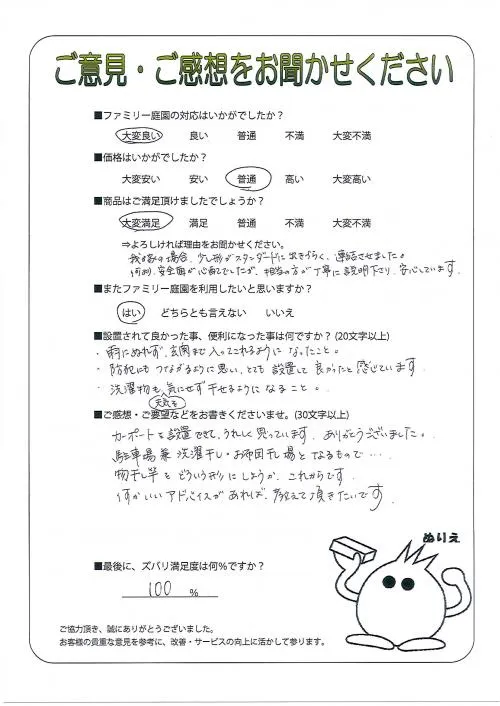 ご意見・ご感想をお聞かせください
■ファミリー庭園の対応はいかがでしたか？
大変良い 良い 普通 不満 大変不満
■価格はいかがでしたか？
大変安い 安い 普通 高い 大変高い
■商品はご満足頂けましたでしょうか？
大変満足 満足 普通 不満 大変不満
⇒よろしければ理由をお聞かせください。
我が家の場合、少し形がスタンダードに出きづらく、連結させました。
何時、安全面が心配でしたが、担当の方が丁寧に説明下さり、安心しています。
■またファミリー庭園を利用したいと思いますか？
はい どちらとも言えない いいえ
■設置されて良かった事、便利になった事は何ですか？(20文字以上)
・雨にぬれず、玄関まで入ってこれるようになったこと。
・防犯にもつながるように思い、とても設置して良かったと感じています
・洗濯物も 天気を 気にせず干せるようになること。
■ご感想・ご要望などをお書きくださいませ。(30文字以上)
カーポートを設置できて、うれしく思っています。ありがとうございました。
駐車場兼洗濯干し・お布団干し場となるもので…、
物干し竿をどういう形にしようか、これからです。
何かいいアドバイスがあれば、教えて頂きたいです。
ぬりえ
■最後に、ズバリ満足度は何％ですか？
100 %
ご協力頂き、誠にありがとうございました。
お客様の貴重な意見を参考に、改善・サービスの向上に活かして参ります。